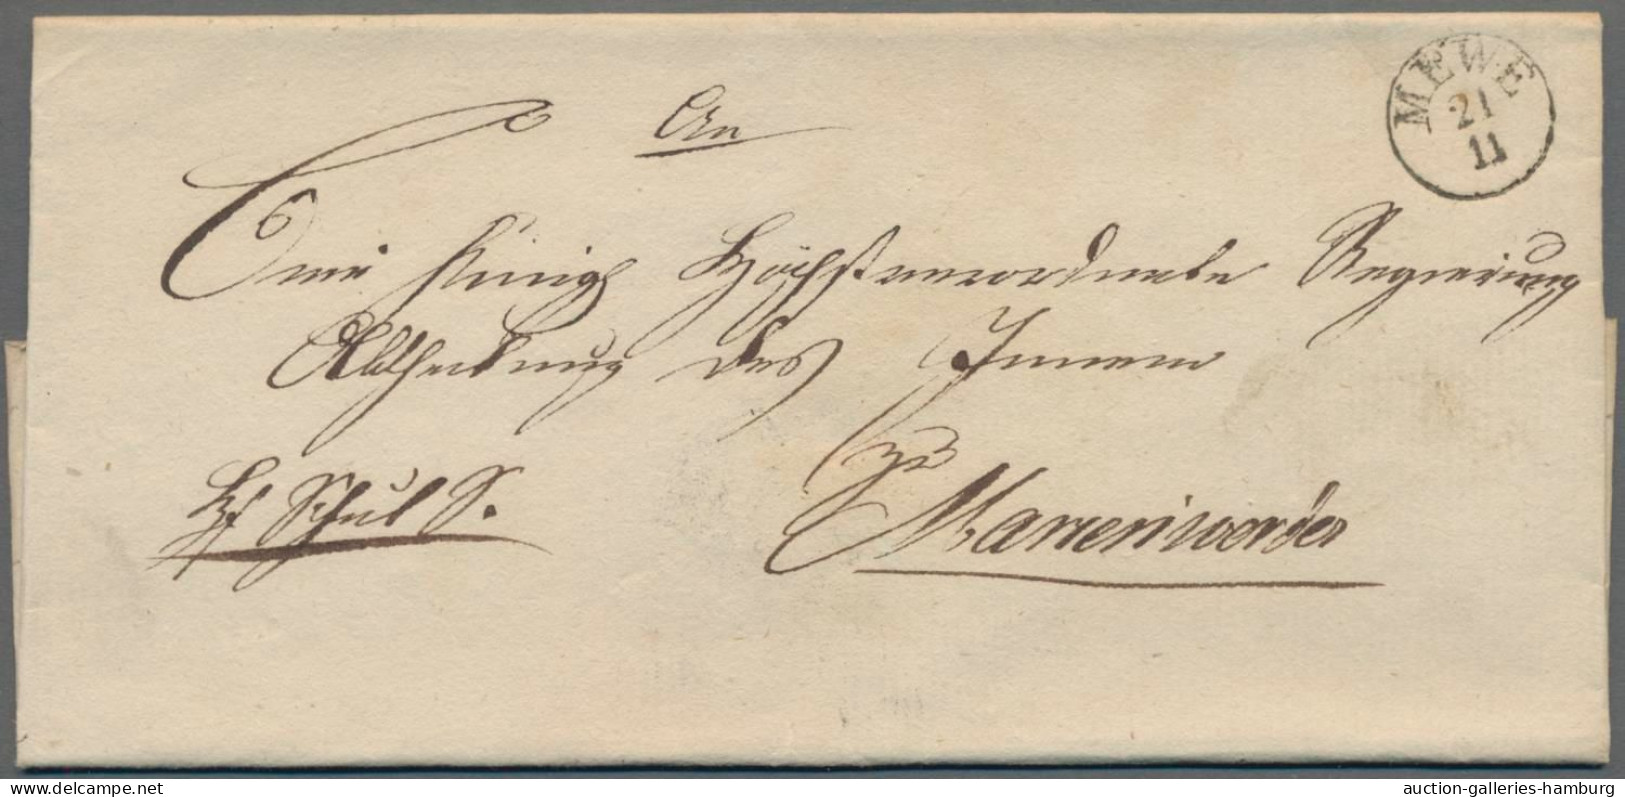 MEWE
21
11
An
Eine Königl Höchstverordnete Regierung
Abtheilung des Innern
zu
Marienwerder
Schul S.
auction-galleries-hamburg
delcampe.net